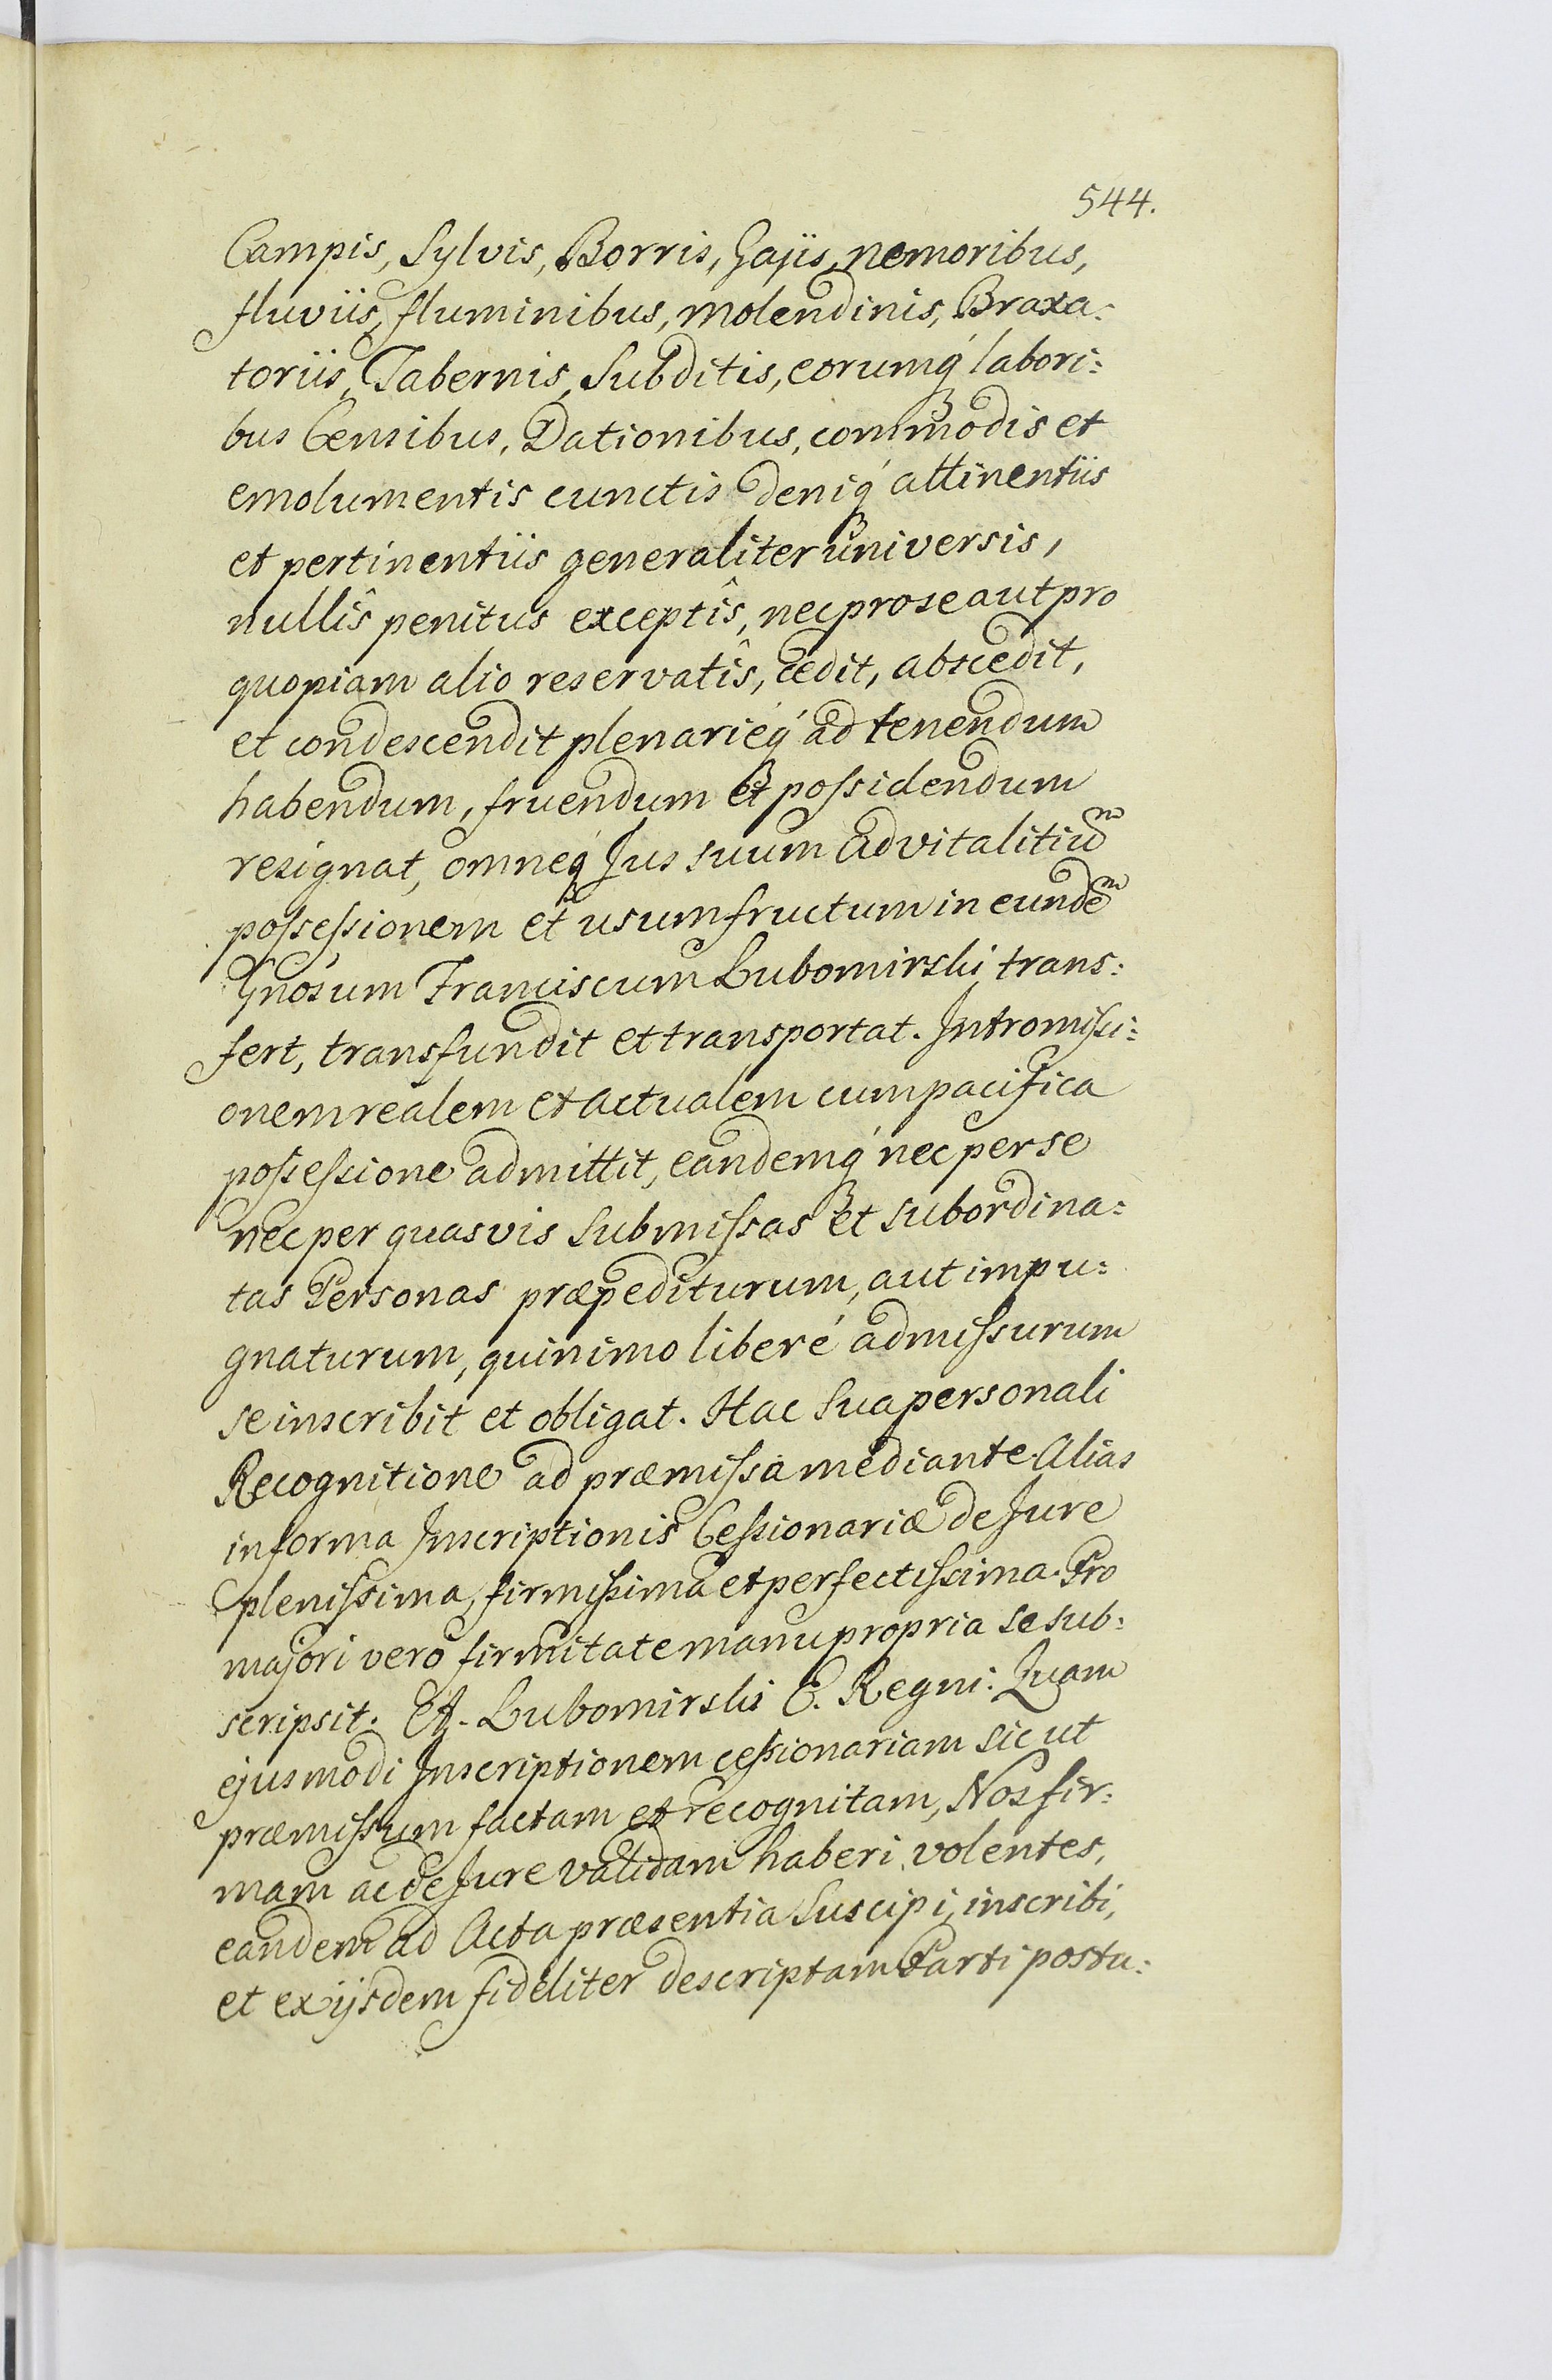 544.
Campis, Sylvis, Borris, Gajis, nemoribus,
fluviis, fluminibus, molendinis, Braxa:
toriis, Tabernis, Subditis, eorumq́ labori:
bus Censibus, Dationibus, commodis et
emolumentis cunctis deniq́ attinentiis
et pertinentiis generaliter universis,
nullîs penitus exceptîs, nec pro se aut pro
quopiam alio reservatîs, cedit, abscedit,
et condescendit plenarieq́ ad tenendum
habendum, fruendum et possidendum
resignat, omneq́ Jus suum advitalitiũ
possessionem et usumfructum in eundẽ
Gnosum Franciscum Lubomirski trans:
fert, transfundit et transportat. Intromissi:
onem realem et actualem cum pacifica
possessione admittit, eandemq́ nec per se
nec per quasvis submissas et subordina:
tas Personas præpediturum, aut impu:
gnaturum, quinimo liberé admissurum
se inscribit et obligat. Hac sua personali
Recognitione ad præmissa mediante. Alias
in forma Inscriptionis Cessionariæ de Jure
plenissima, firmissima et perfectissima. Pro
majori vero firmitate manu propria se sub:
scripsit. A. Lubomirski C. Regni: Quam
ejusmodi Inscriptionem cessionariam sic ut
præmissum factam et recognitam, Nos fir:
mam ac de Jure validam haberi volentes,
eandem ad Acta præsentia suscipi, inscribi,
et ex ijsdem fideliter descriptam Parti postu: